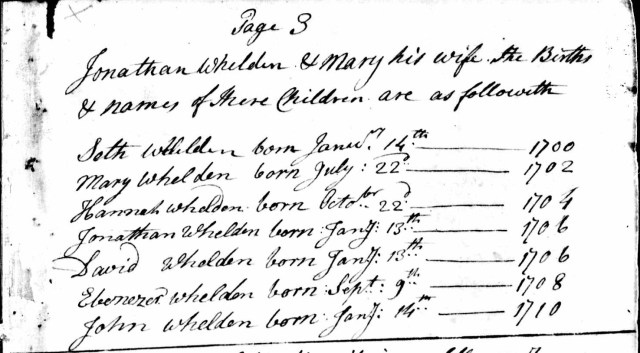 Page 3
Jonathan Whelden & Mary his wife the Births
& names of there Children are as followeth
Seth Whelden born Janu.ry 14.th 1700
Mary Whelden born July: 22.d 1702
Hannah Whelden born Octobr 22.d 1704
Jonathan Whelden born Janʸ: 13.th 1706
David Whelden born Janʸ: 13.th 1706
Ebenezer Whelden born Sept: 9.th 1708
John Whelden born Janʸ: 14.th 1710